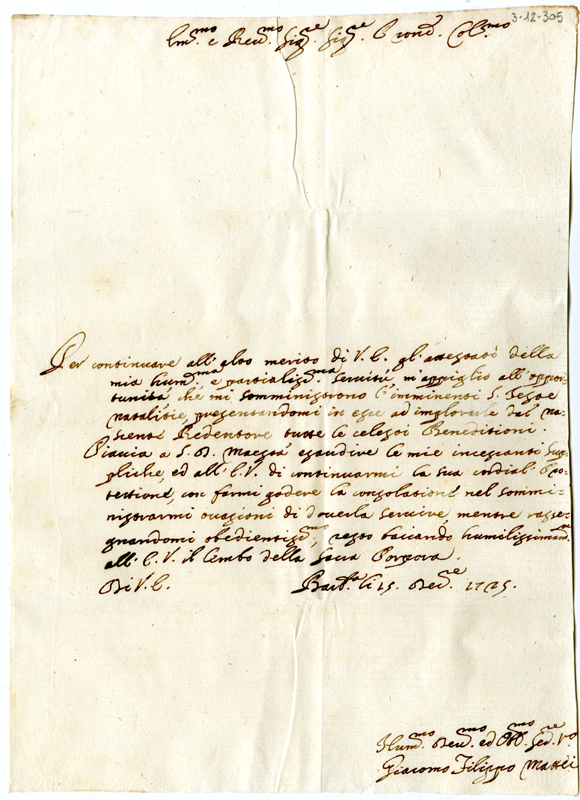 3-12-305
Em.mo e Rev.mo Sig.re Sig.re e Pron.e Col.mo
Per continuare all'alto merito di V. E. gl'attestati della
mia hum.ma e partialiss.ma servitù, m'appiglio all'oppor-
tunità che mi somministrono l'imminenti S. Feste
natalitie, presentandomi in esse ad implorarle dal na-
scente Redentore tutte le celesti Beneditioni.
Piaccia a S. D. Maestà esaudire le mie incessanti sup-
pliche, ed all'E. V. di continuarmi la sua cordial Pro-
tettione, con farmi godere la consolatione nel sommi-
nistrarmi occasioni di doverla servire, mentre rasse-
gnandomi obedientiss.mo, resto baciando humilissimam.te
all'E. V. il lembo della Sacra Porpora.
Di V. E. li 15. Dec.re 1725.
Hum.mo Dev.mo ed Obb. Ser.re V.o
Giacomo Filippo Mattei